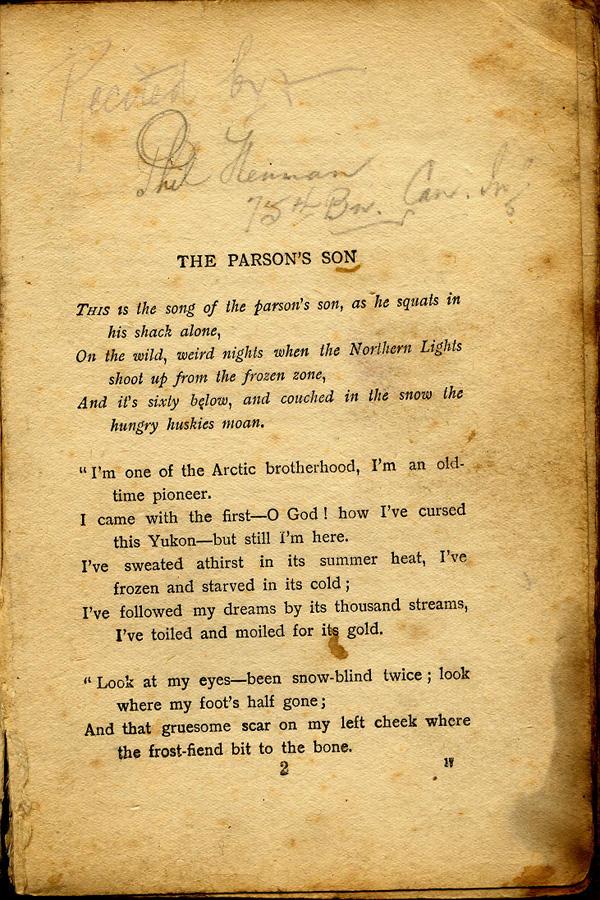 Recited by
Phil
75th Bn. Can. Inf
THE PARSON'S SON
THIS is the song of the parson's son, as he squats in
his shack alone,
On the wild, weird nights when the Northern Lights
shoot up from the frozen zone,
And it's sixty below, and couched in the snow the
hungry huskies moan.
"I'm one of the Arctic brotherhood, I'm an old-
time pioneer.
I came with the first—O God! how I've cursed
this Yukon—but still I'm here.
I've sweated athirst in its summer heat, I've
frozen and starved in its cold;
I've followed my dreams by its thousand streams,
I've toiled and moiled for its gold.
"Look at my eyes—been snow-blind twice; look
where my foot's half gone;
And that gruesome scar on my left cheek where
the frost-fiend bit to the bone.
2